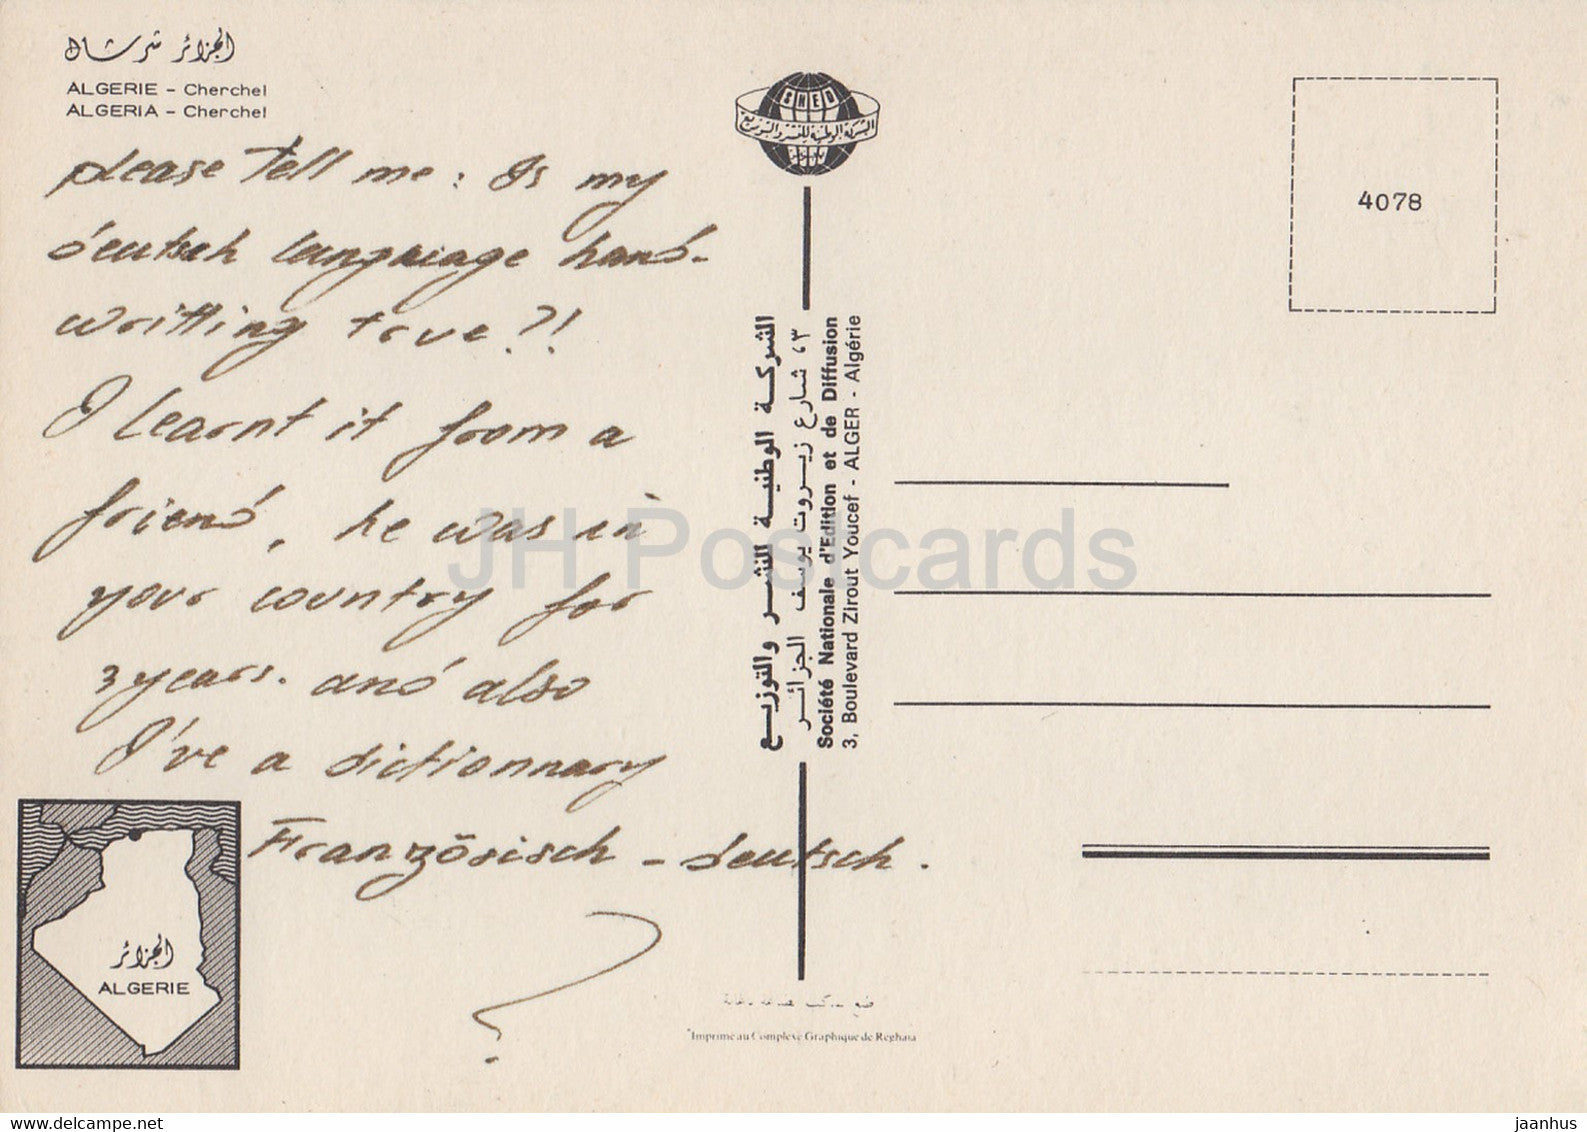 الجزائر شرشال
ALGERIE - Cherchel
ALGERIA - Cherchel
please tell me: Is my
deutsch language hand-
writting true?!
I learnt it from a
friend, he was in
your country for
3 years. and also
I've a dictionnary
Französisch - deutsch.
?
الجزائر
ALGERIE
SNED
الشركة الوطنية للنشر والتوزيع
الشركة الوطنية للنشر والتوزيع
٣، شارع زيروت يوسف الجزائر
Société Nationale d'Edition et de Diffusion
3, Boulevard Zirout Youcef - ALGER - Algérie
4078
Imprimé au Complexe Graphique de Reghaia
JH Postcards
delcampe.net
jaanhus